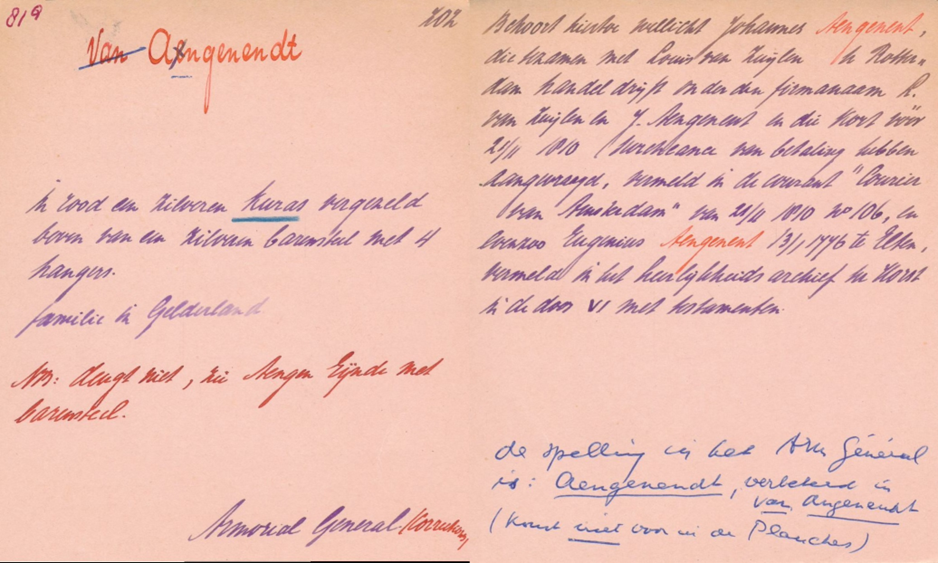 819
202
Van Aengenendt
in rood een zilveren kuras vergezeld
boven van een zilveren barensteel met 4
hangers.
familie in Gelderland
NB: deugt niet, zie Aengen Eijnde met
barensteel.
Armorial General
Behoort hiertoe wellicht Johannes Aengenent,
die tezamen met Louis van Zuijlen te Rotter=
dam handel drijft onder den firmanaam L.
van Zuijlen en J. Aengenent en die kort vóór
21/11 1810 surcheance van betaling hebben
aangevraagd, vermeld in de courant "Courier
van Amsterdam" van 21/11 1810 no 106, en
evenzoo Eugenius Aengenent 13/1 1776 te Elten,
vermeld in het heerlijkheids archief ter Horst
in de doos VI met testamenten.
de spelling in het Arm Général
is: Aengenendt, verbeterd in
van Angenendt
(komt niet voor in de Planches)